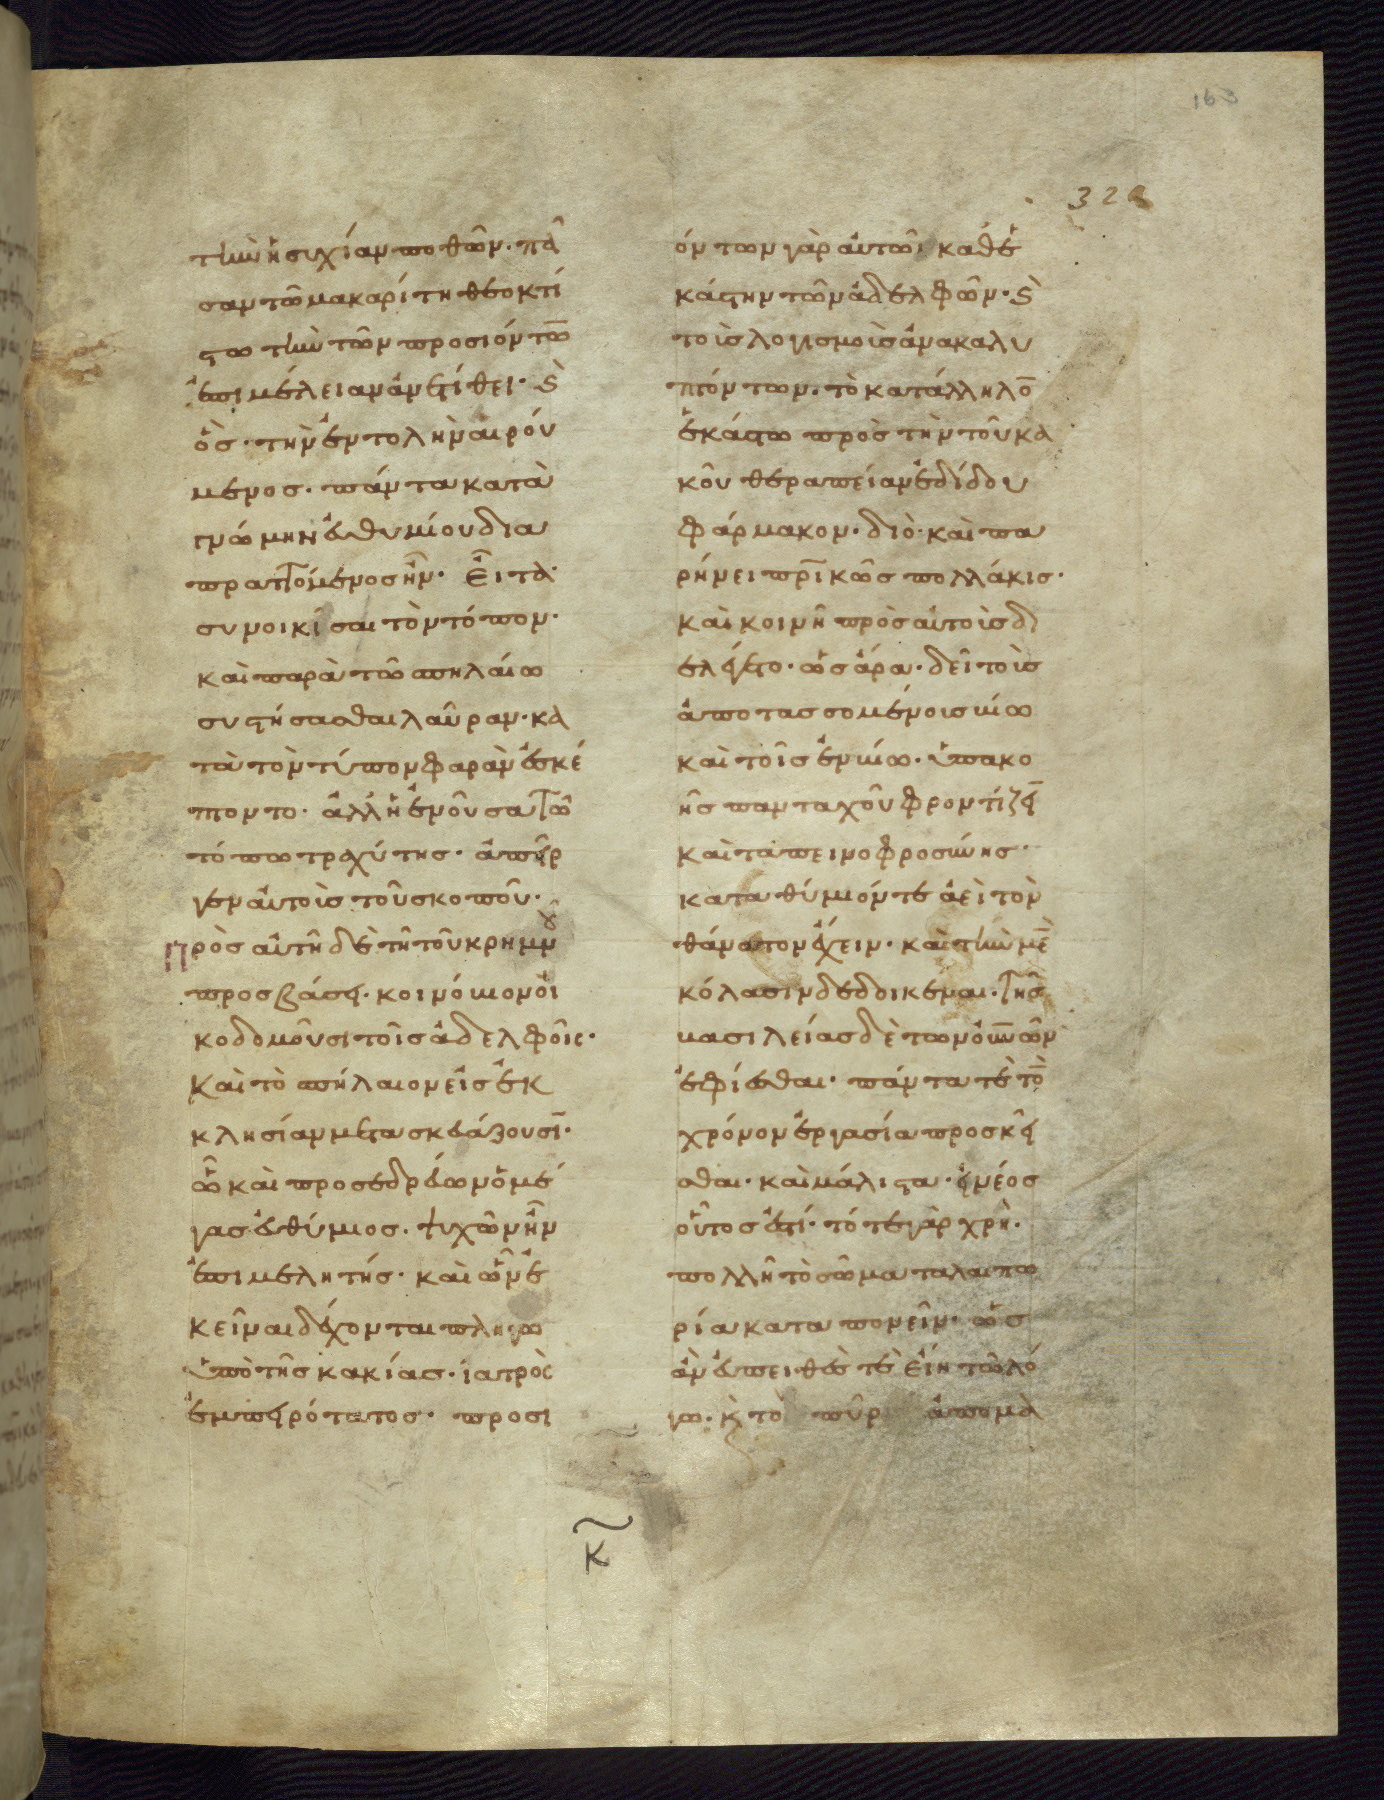 163
328
τὴν ἡσυχίαν ποθῶν· πᾶ
σαν τῶ μακαρίτη θεοκτί
στω τὴν τῶν προσιόντω̅
ἐπιμέλειαν ἀνετίθει· ϗ̀
ὃς· τὴν ἐντολὴν αἰρού
μενος· πάντα κατὰ
γνώμην εὐθυμίου δια
πραττόμενος ἦν· εἶτα
συνοικῖσαι τὸν τόπον·
καὶ παρὰ τῶ σπηλαίω
συστήσασθαι λαῦραν· κα
τὰ τὸν τύπον φαρὰν ἐσκέ
πτοντο· ἀλλ' ἡ ἐνοῦσα τῶ
τόπω τραχύτης· ἀπεῖρ
γεν αὐτοὺς τοῦ σκοποῦ·
πρὸς αὐτῆ δὲ τῆ τοῦ κρημνοῦ
προσβάσει· κοινόβιον οἰ
κοδομοῦσι τοῖς ἀδελφοῖς·
καὶ τὸ σπήλαιον εἰς ἐκ
κλησίαν μετασκευάζουσι̅·
ὧ καὶ προσεδρεύων ὁ μέ
γας εὐθύμιος· ψυχῶν ἦν
ἐπιμελητής· καὶ ὧν ἐ
κεῖναι δέχονται πληγῶ
ὑπὸ τῆς κακίας· ἰατρὸς
ἐμπειρότατος· προσι
όντων γὰρ αὐτῶ· καθ' ἑ
κάστην τῶν ἀδελφῶν· ϗ̀
τοὺς λογισμοὺς ἀνακαλυ
πτόντων· τὸ κατάλληλο̅
ἑκάστω πρὸς τὴν τοῦ κα
κοῦ θεραπείαν ἐδίδου
φάρμακον· διὸ· καὶ πα
ρήνει πρ̅ικῶς πολλάκις·
καὶ κοινῆ πρὸς αὐτοὺς δι
ελέγετο· ὡς ἄρα· δεῖ τοὺς
ἀποτασσομένους βίω
καὶ τοῖς ἐν βίω· ὑπακο
ῆς πανταχοῦ φροντίζει̅
καὶ ταπεινοφροσύνης·
καταθύμιόν τε ἀεὶ τὸν
θάνατον ἔχειν· καὶ τὴν μὲ̅
κόλασιν δεδοικέναι· τῆς
βασιλείας δὲ τῶν οὐ̅νῶν
ἐφίεσθαι· πάντα τὲ τὸ̅
χρόνον ἐργασία προσκεῖ
σθαι· καὶ μάλιστα· εἰ νέος
οὗτος ἐστί· τότε γὰρ χρὴ·
πολλῆ τὸ σῶμα ταλαιπω
ρία καταπονεῖν· ὡς
ἂν εὐπειθές τὲ εἴη τῶ λό
γω· ϗ̀ τὸ πῦρ ἀπομα
κ̃